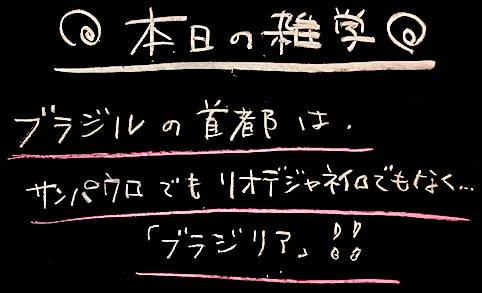 本日の雑学
ブラジルの首都は、
サンパウロでもリオデジャネイロでもなく…
「ブラジリア」!!